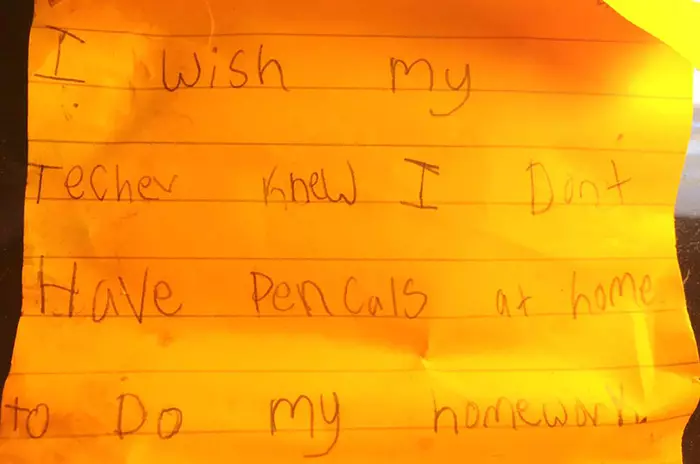 I Wish my
Techer knew I Dont
Have Pencals at home
to Do my homework.